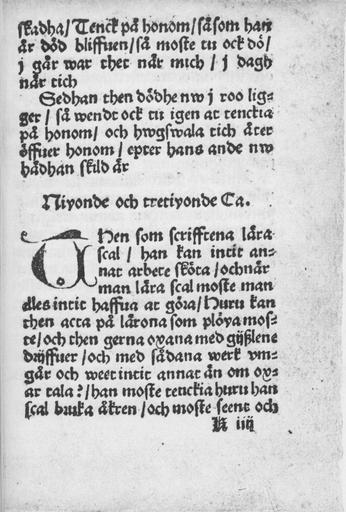 skadha/Tenck på honom/såsom han
är död bliffuen/så moste tu ock dö/
j går war thet når mich/j dagh
når tich
Sedhan then dödhe nw j roo lig-
ger/så wendt ock tu igen at tenckia
på honom/och hwgswala tich åter
öffuer honom/epter hans ande nw
hådhan skild är
Niyonde och tretiyonde Ca.
THen som scrifftena lära
scal/han kan intit an-
nat arbete sköta/ochnär
man lära scal moste man
elles intit haffua at göra/Huru kan
then acta på lärona som plöya mos-
te/och then gerna oxana med gijßlene
drijffuer/och med sådana werk vm-
går och weet intit annat än om ox-
ar tala?/han moste tenckia huru han
scal bruka åkren/och moste seent och
K iiij